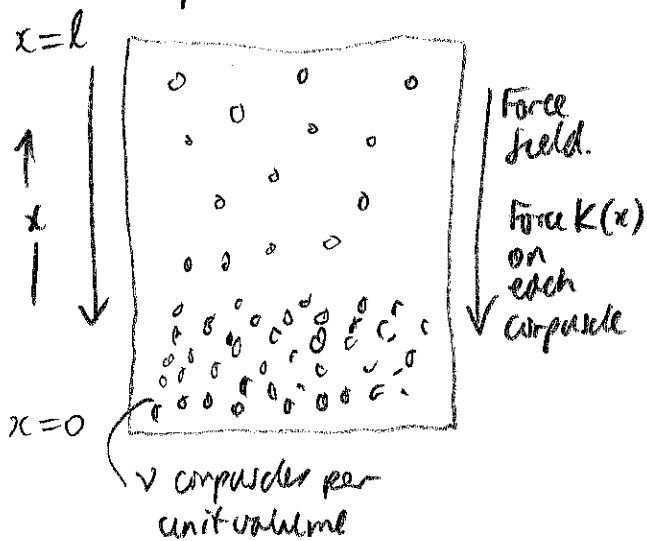 x=l
x
x=0
Force
field.
Force K(x)
on
each
corpuscle
ν corpuscles per
unit volume